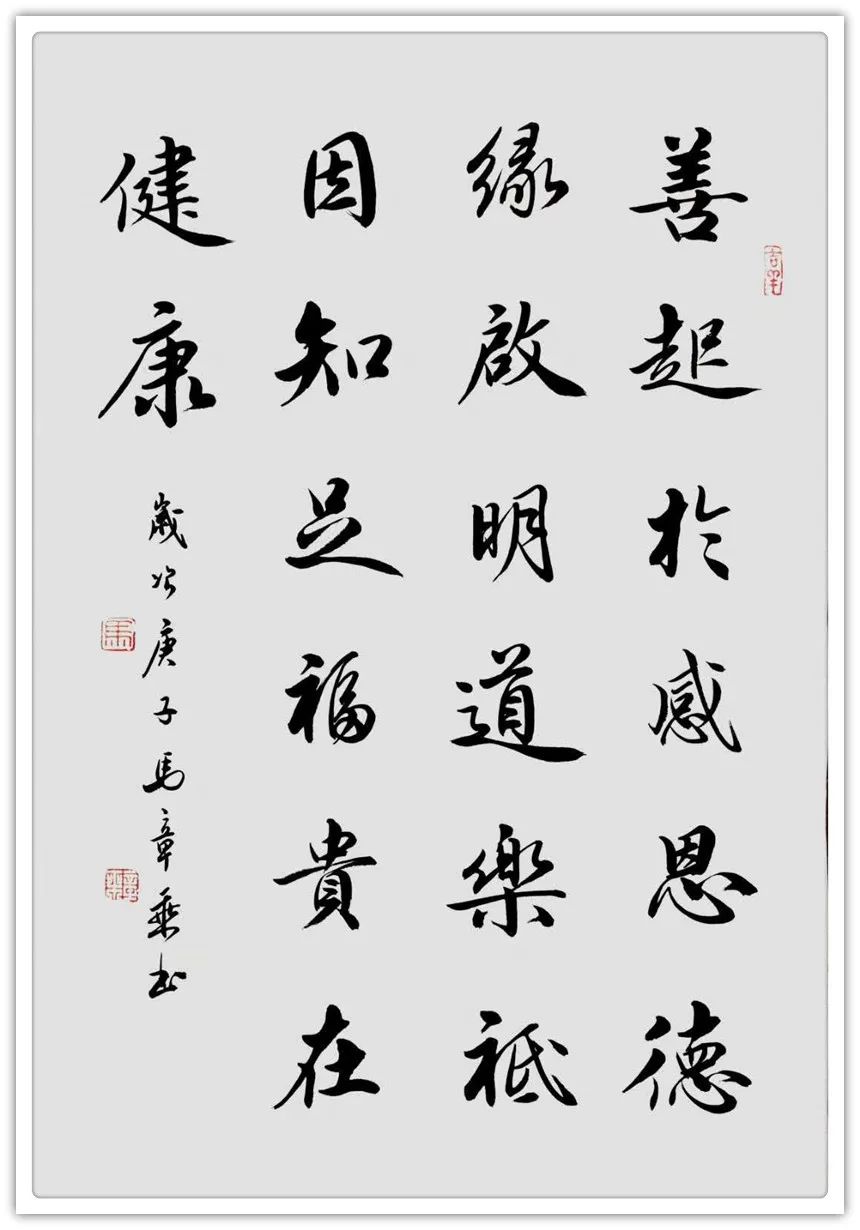 善起於感恩德
緣啟明道樂祗
因知足福貴在
健康
歲次庚子馬章乘書
馬